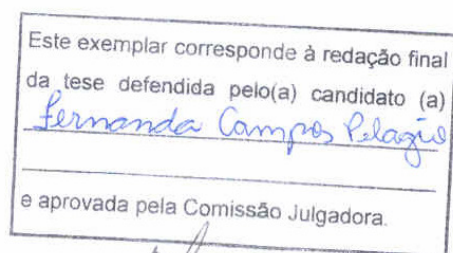 Este exemplar corresponde à redação final
da tese defendida pelo(a) candidato (a)
Fernanda Campos Pelagio
e aprovada pela Comissão Julgadora.